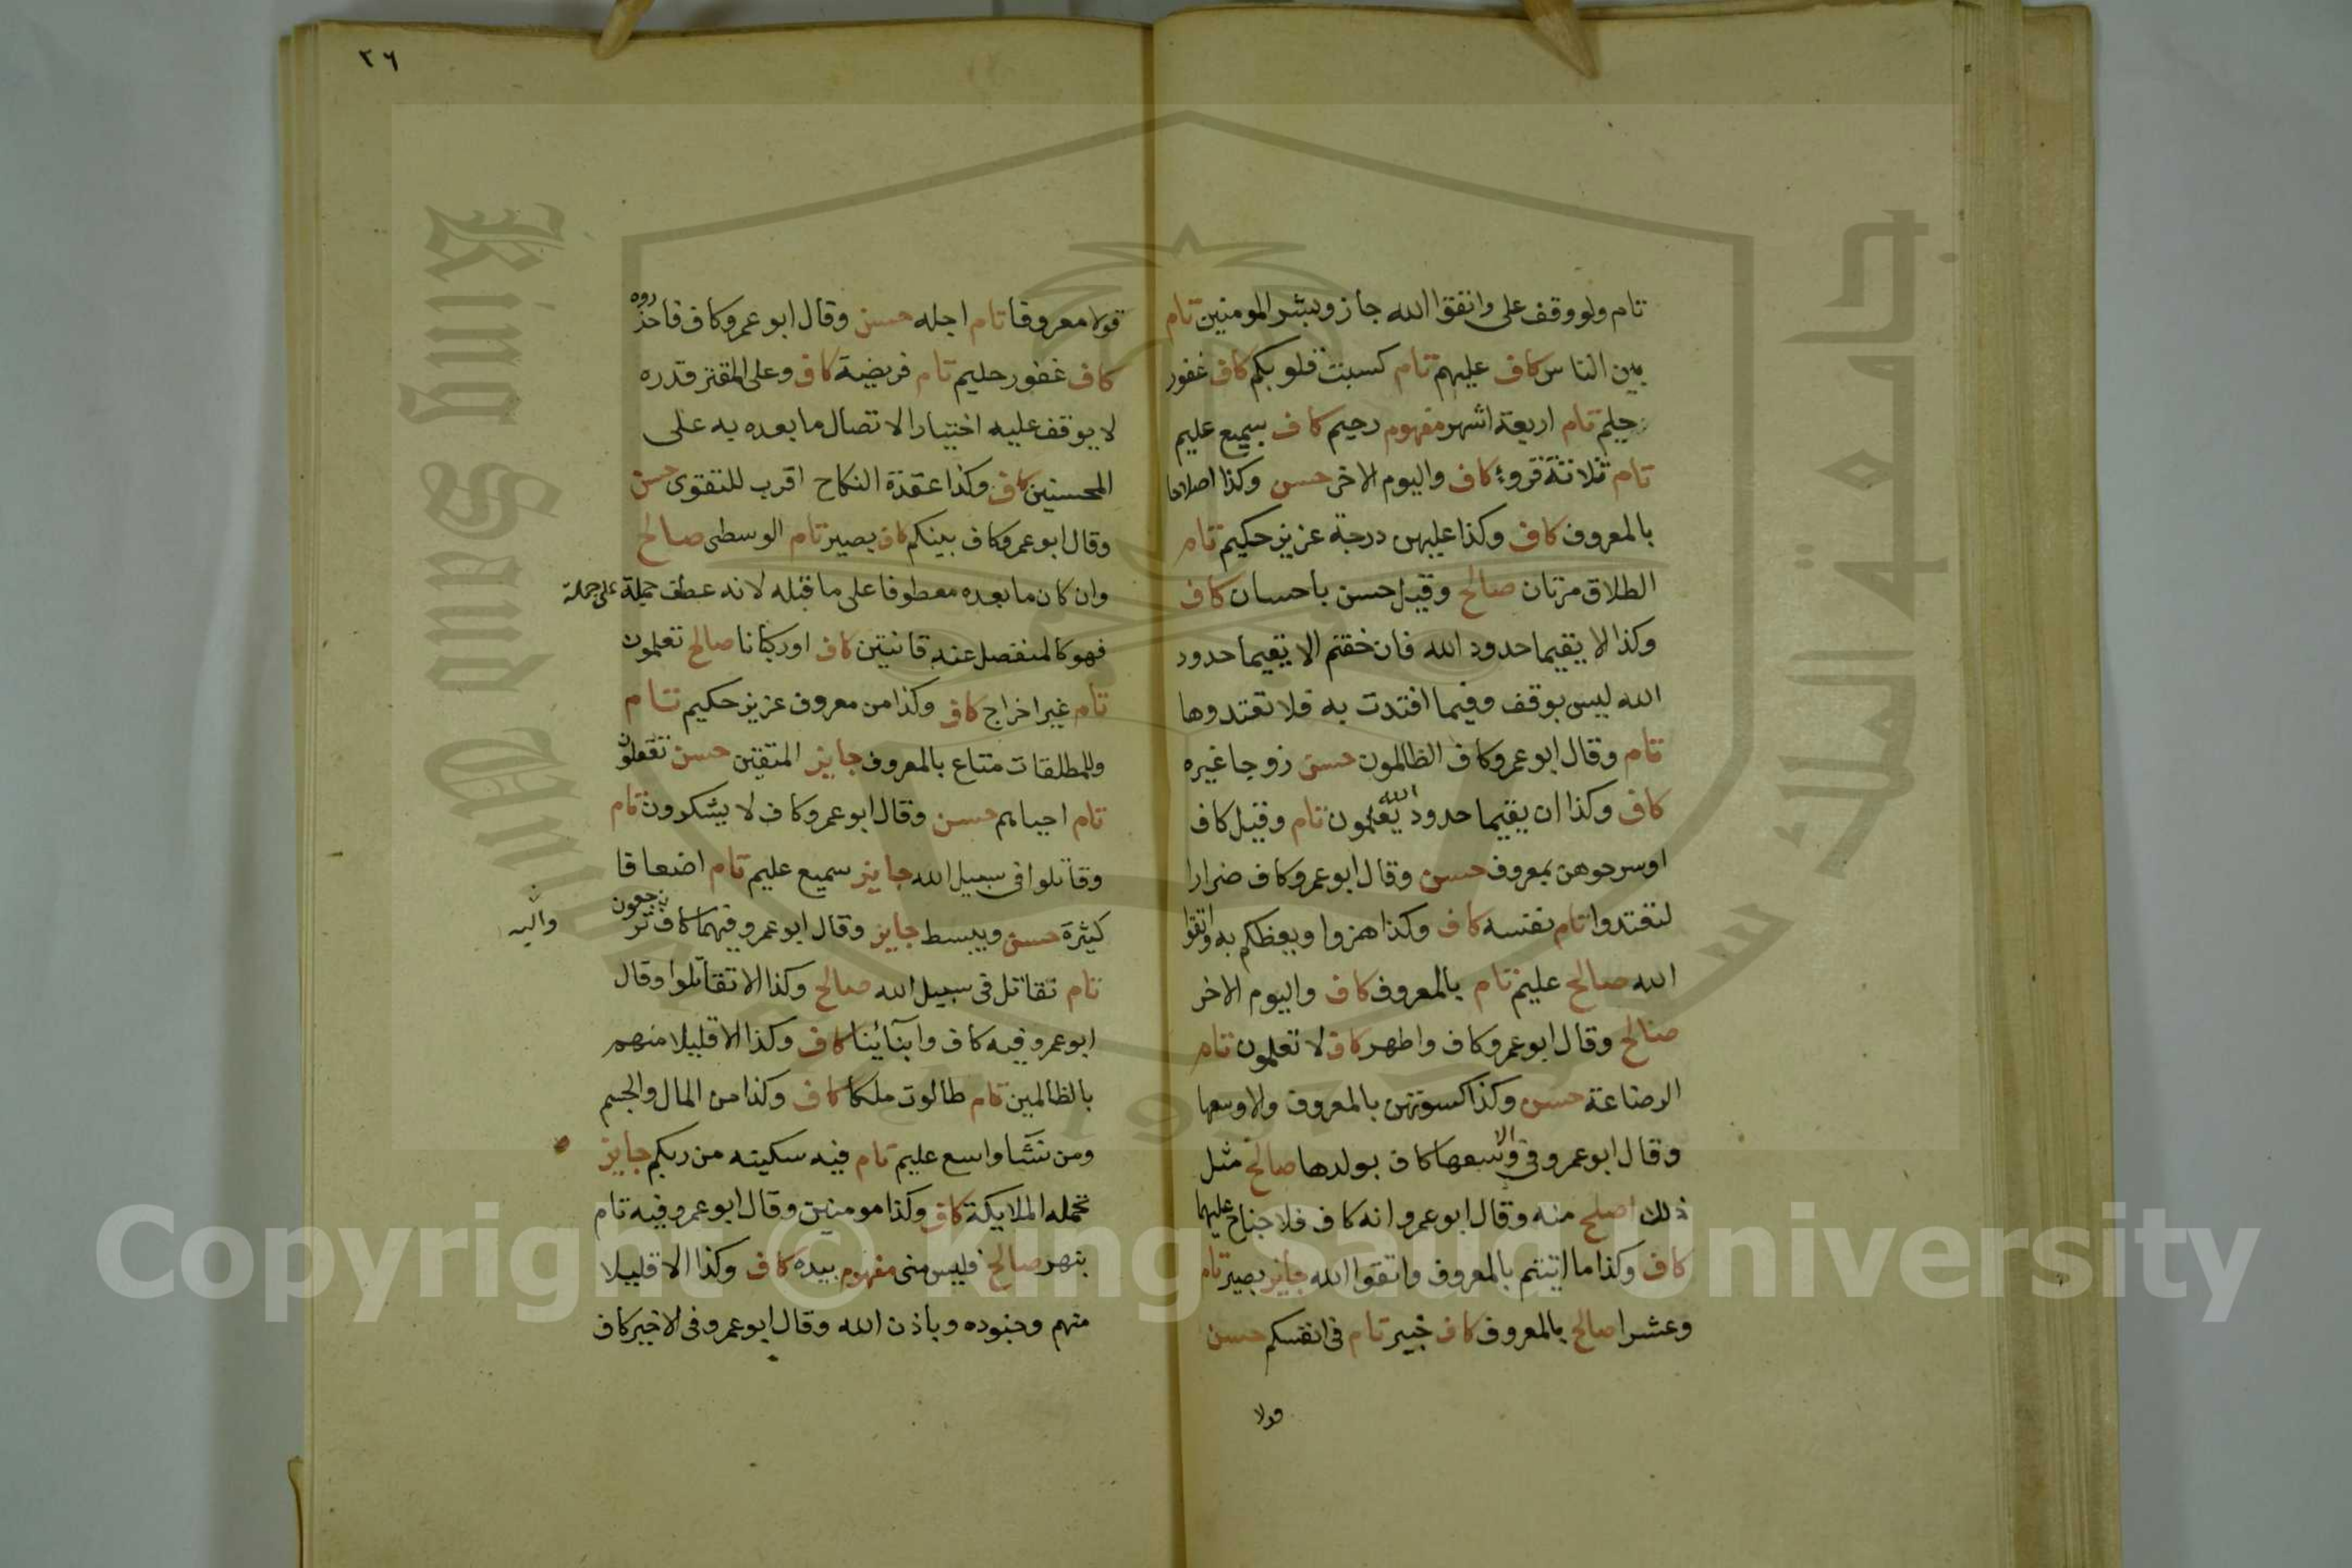 تام ولو وقف على وانقوا الله جاز وبشر المومنين تام
بين الناس كاف عليهم تام كسبت قلوبكم كاف غفور
حليم تام اربعة اشهر مفهوم رحيم كاف سميع عليم
تام ثلاثة قروء كاف واليوم الاخر حسن وكذا اصلاحا
بالمعروف كاف وكذا عليهن درجة عزيز حكيم تام
الطلاق مرتان صالح وقيل حسن باحسان كاف
وكذا الا يقيما حدود الله فان خفتم الا يقيما حدود
الله ليس بوقف وفيما افتدت به فلا تعتدوها
تام وقال ابو عمرو كاف الظالمون حسن زوجا غيره
كاف وكذا ان يقيما حدود الله يعلمون تام وقيل كاف
او سرحوهن بمعروف حسن وقال ابو عمرو كاف ضرارا
لتعتدوا تام نفسه كاف وكذا هزوا ويعظكم به واتقوا
الله صالح عليم تام بالمعروف كاف واليوم الاخر
صالح وقال ابو عمرو كاف واطهر كاف لا تعلمون تام
الرضاعة حسن وكذا كسوتهن بالمعروف والا وسعها
وقال ابو عمرو في الا وسعها كاف بولدها صالح مثل
ذلك اصلح منه وقال ابو عمرو انه كاف فلا جناح عليهما
كاف وكذا ما اتيتم بالمعروف واتقوا الله جايز بصير تام
وعشرا صالح بالمعروف كاف خبير تام في انفسكم حسن
قولا
٢٦
قولا معروفا تام اجله حسن وقال ابو عمرو كاف فاحذروه
كاف غفور حليم تام فريضة كاف وعلى المقتر قدره
لا يوقف عليه اختيارا لاتصال ما بعده به على
المحسنين كاف وكذا عقدة النكاح اقرب للتقوى حسن
وقال ابو عمرو كاف بينكم كاف بصير تام الوسطى صالح
وان كان ما بعده معطوفا على ما قبله لانه عطف جملة على جملة
فهو كالمنفصل عنه قانتين كاف او ركبانا صالح تعلمون
تام غير اخراج كاف وكذا من معروف عزيز حكيم تام
وللمطلقات متاع بالمعروف جايز المتقين حسن تعقلون
تام احياهم حسن وقال ابو عمرو كاف لا يشكرون تام
وقاتلوا في سبيل الله جايز سميع عليم تام اضعافا
كثيرة حسن ويبسط جايز وقال ابو عمرو فيهما كاف ترجعون
واليه
تام نقاتل في سبيل الله صالح وكذا الا تقاتلوا وقال
ابو عمرو فيه كاف وابنآئنا كاف وكذا الا قليلا منهم
بالظالمين تام طالوت ملكا كاف وكذا من المال والجسم
ومن نشا واسع عليم تام فيه سكينه من ربكم جايز
تحمله الملايكة كاف وكذا مومنين وقال ابو عمرو فيه تام
بنهر صالح فليس مني مفهوم بيده كاف وكذا الا قليلا
منهم وجنوده وباذن الله وقال ابو عمرو في الاخير كاف
جامعة الملك سعود
King Saud University
1957
Copyright © King Saud University